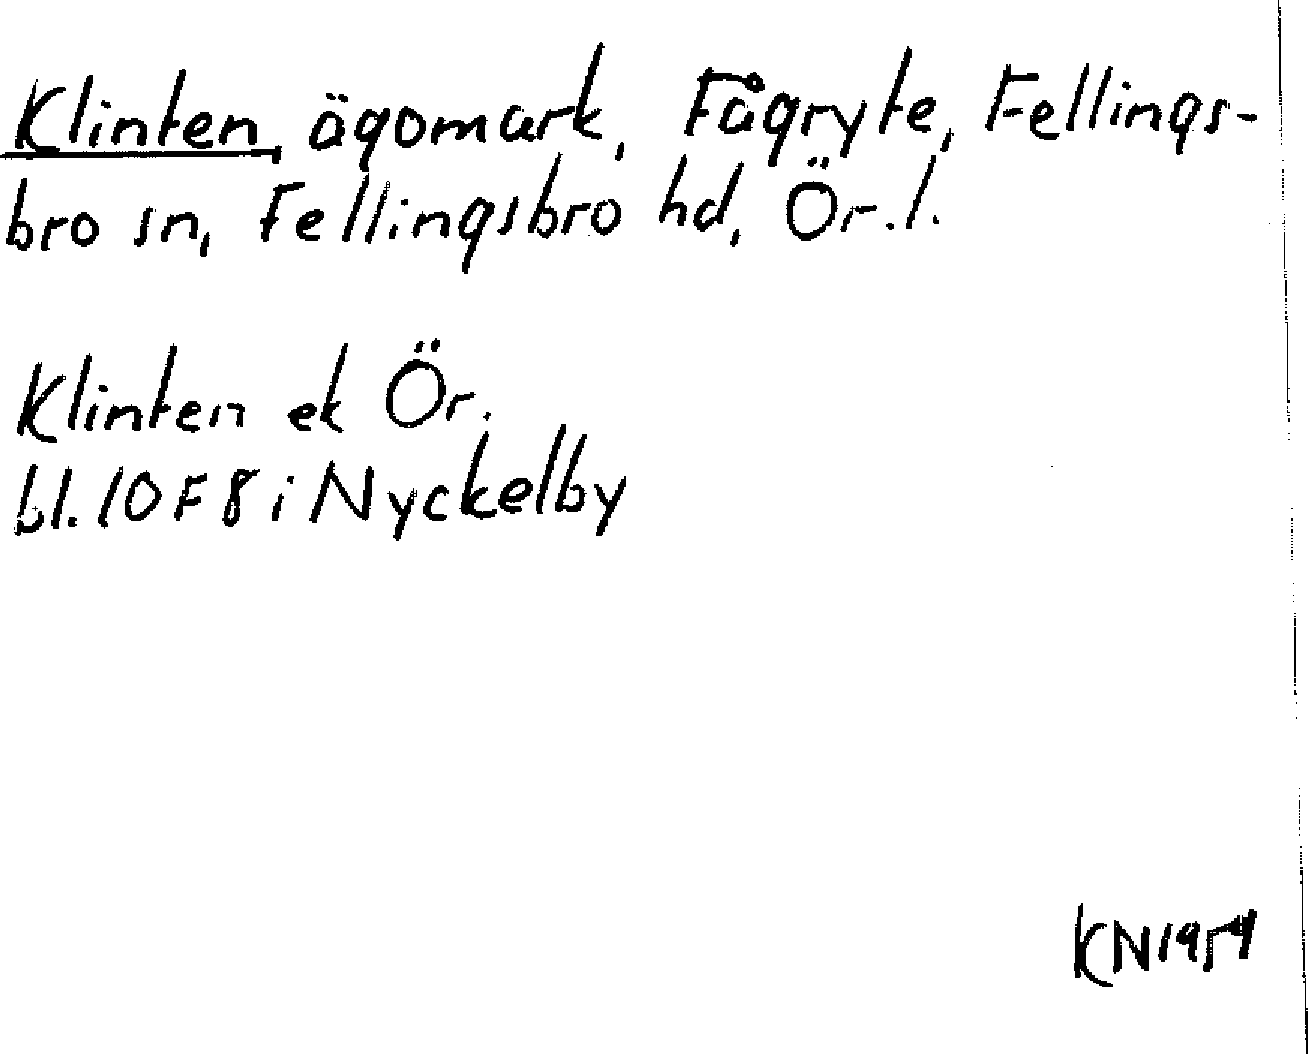 Klinten, ägomark, Fågryte, Fellings-
bro sn, Fellingsbro hd, Ör.l.
Klinten ek Ör.
bl. 10 F 8 i Nyckelby
KN 1954